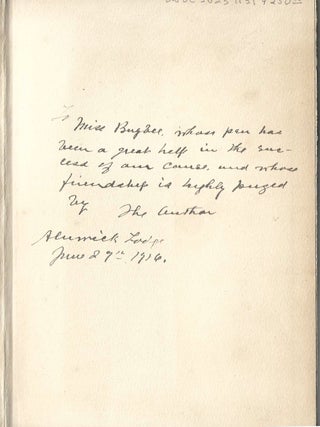 To
Miss Bugbee, whose pen has
been a great help in the suc-
cess of our cause, and whose
friendship is highly prized
by The Author
Alnwick Lodge
June 29th 1916.